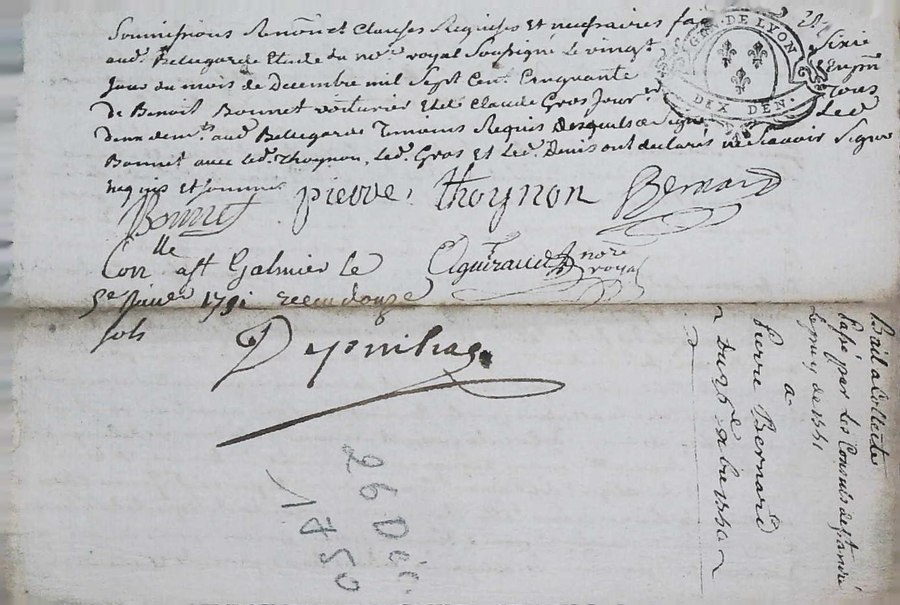 Soumissions Renont Clauses Requises Et necessaires fa
aud. Bellegarde Etude du nore. royal Soussigné Le vingt Sixie
Jour du mois de Decembre mil Sept Cent Cinquante En pnce
de Benoit Bonnet voiturier Et de Claude Gros Jour.
demt. aud Bellegarde Temoins Requis Desquels a Signé Led.
Bonnet avec led. Thoynon, Led. Gros Et Led. Denis ont declarés ne Scavoir Signer
requis et sommés
GEN. DE LYON
DIX DEN.
Bonnet pierre. thoynon Bernard
Conlle a st Galmier Le
5e Janvr 1751 receu douze
sols
nore
royal
Bail a Collecte
Passé par Les Consuls de st andré
Lepuy de 1751
a
Pierre Bernard
26 Déc.
1750